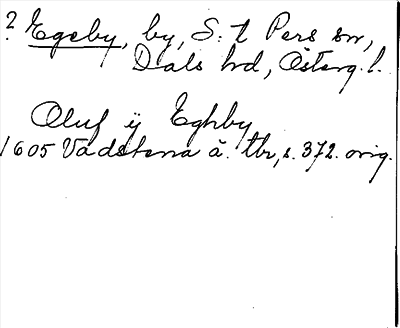 ? Egeby, by, S:t Pers sn,
Dals hd, Österg. l.
Oluf ij Eghby
1605 Vadstena ä. tbr, s. 372. orig.